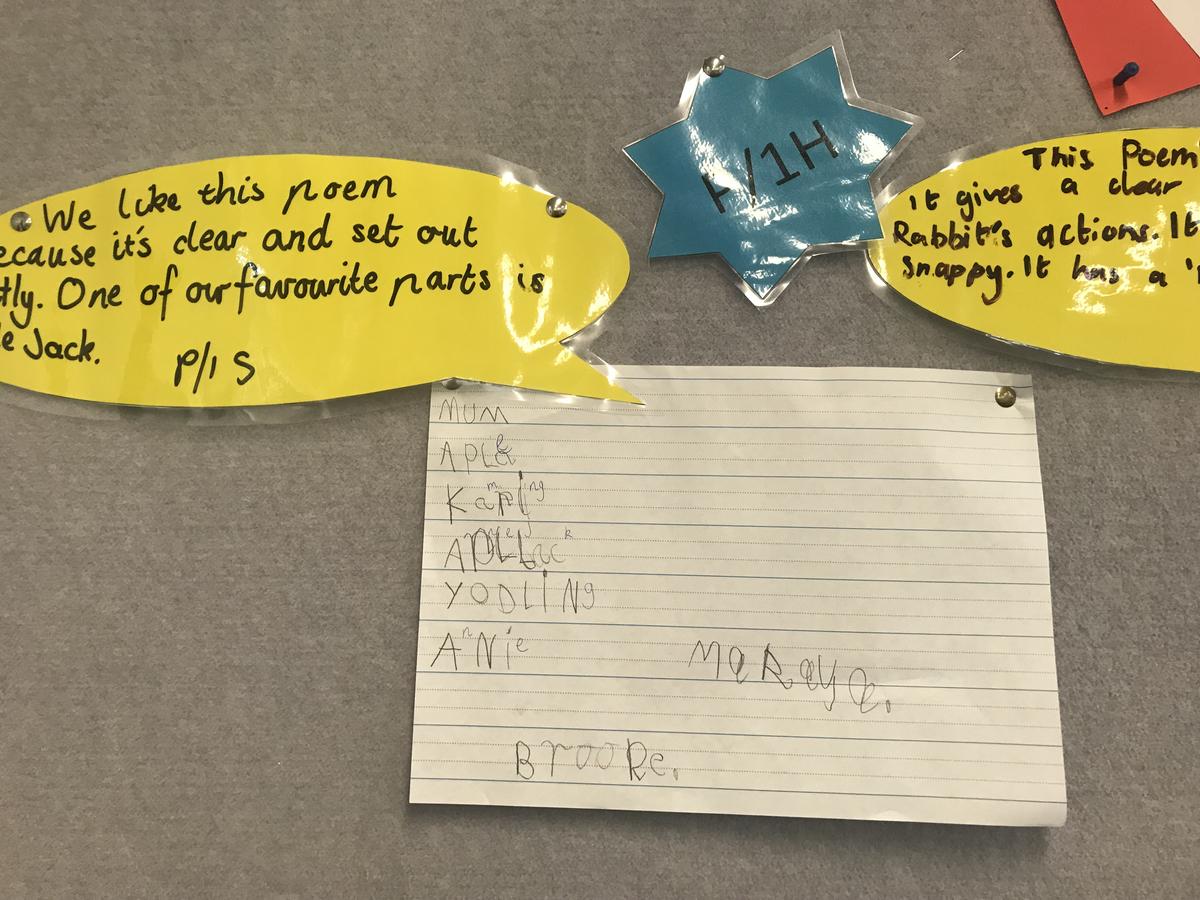 We like this poem
ecause it's clear and set out
tly. One of our favourite parts is
e Jack.
P/1 S
P/1H
This Poem
It gives a clear
Rabbit's actions. It
Snappy. It has a
MUM
YODLiNg
ANnie
MaRaya.
BrooRe.